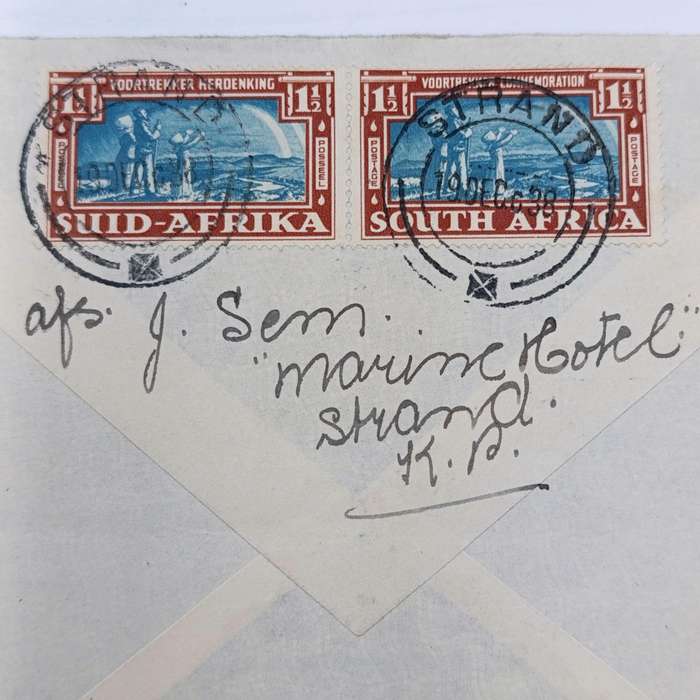 1½ VOORTREKKER HERDENKING 1½
POSSEEL
SUID-AFRIKA
1½ VOORTREKKER COMMEMORATION 1½
POSTAGE POSTAGE
SOUTH AFRICA
STRAND
STRAND
19 DEC 38
afs. J. Sem.
"Marine Hotel"
Strand.
K.P.